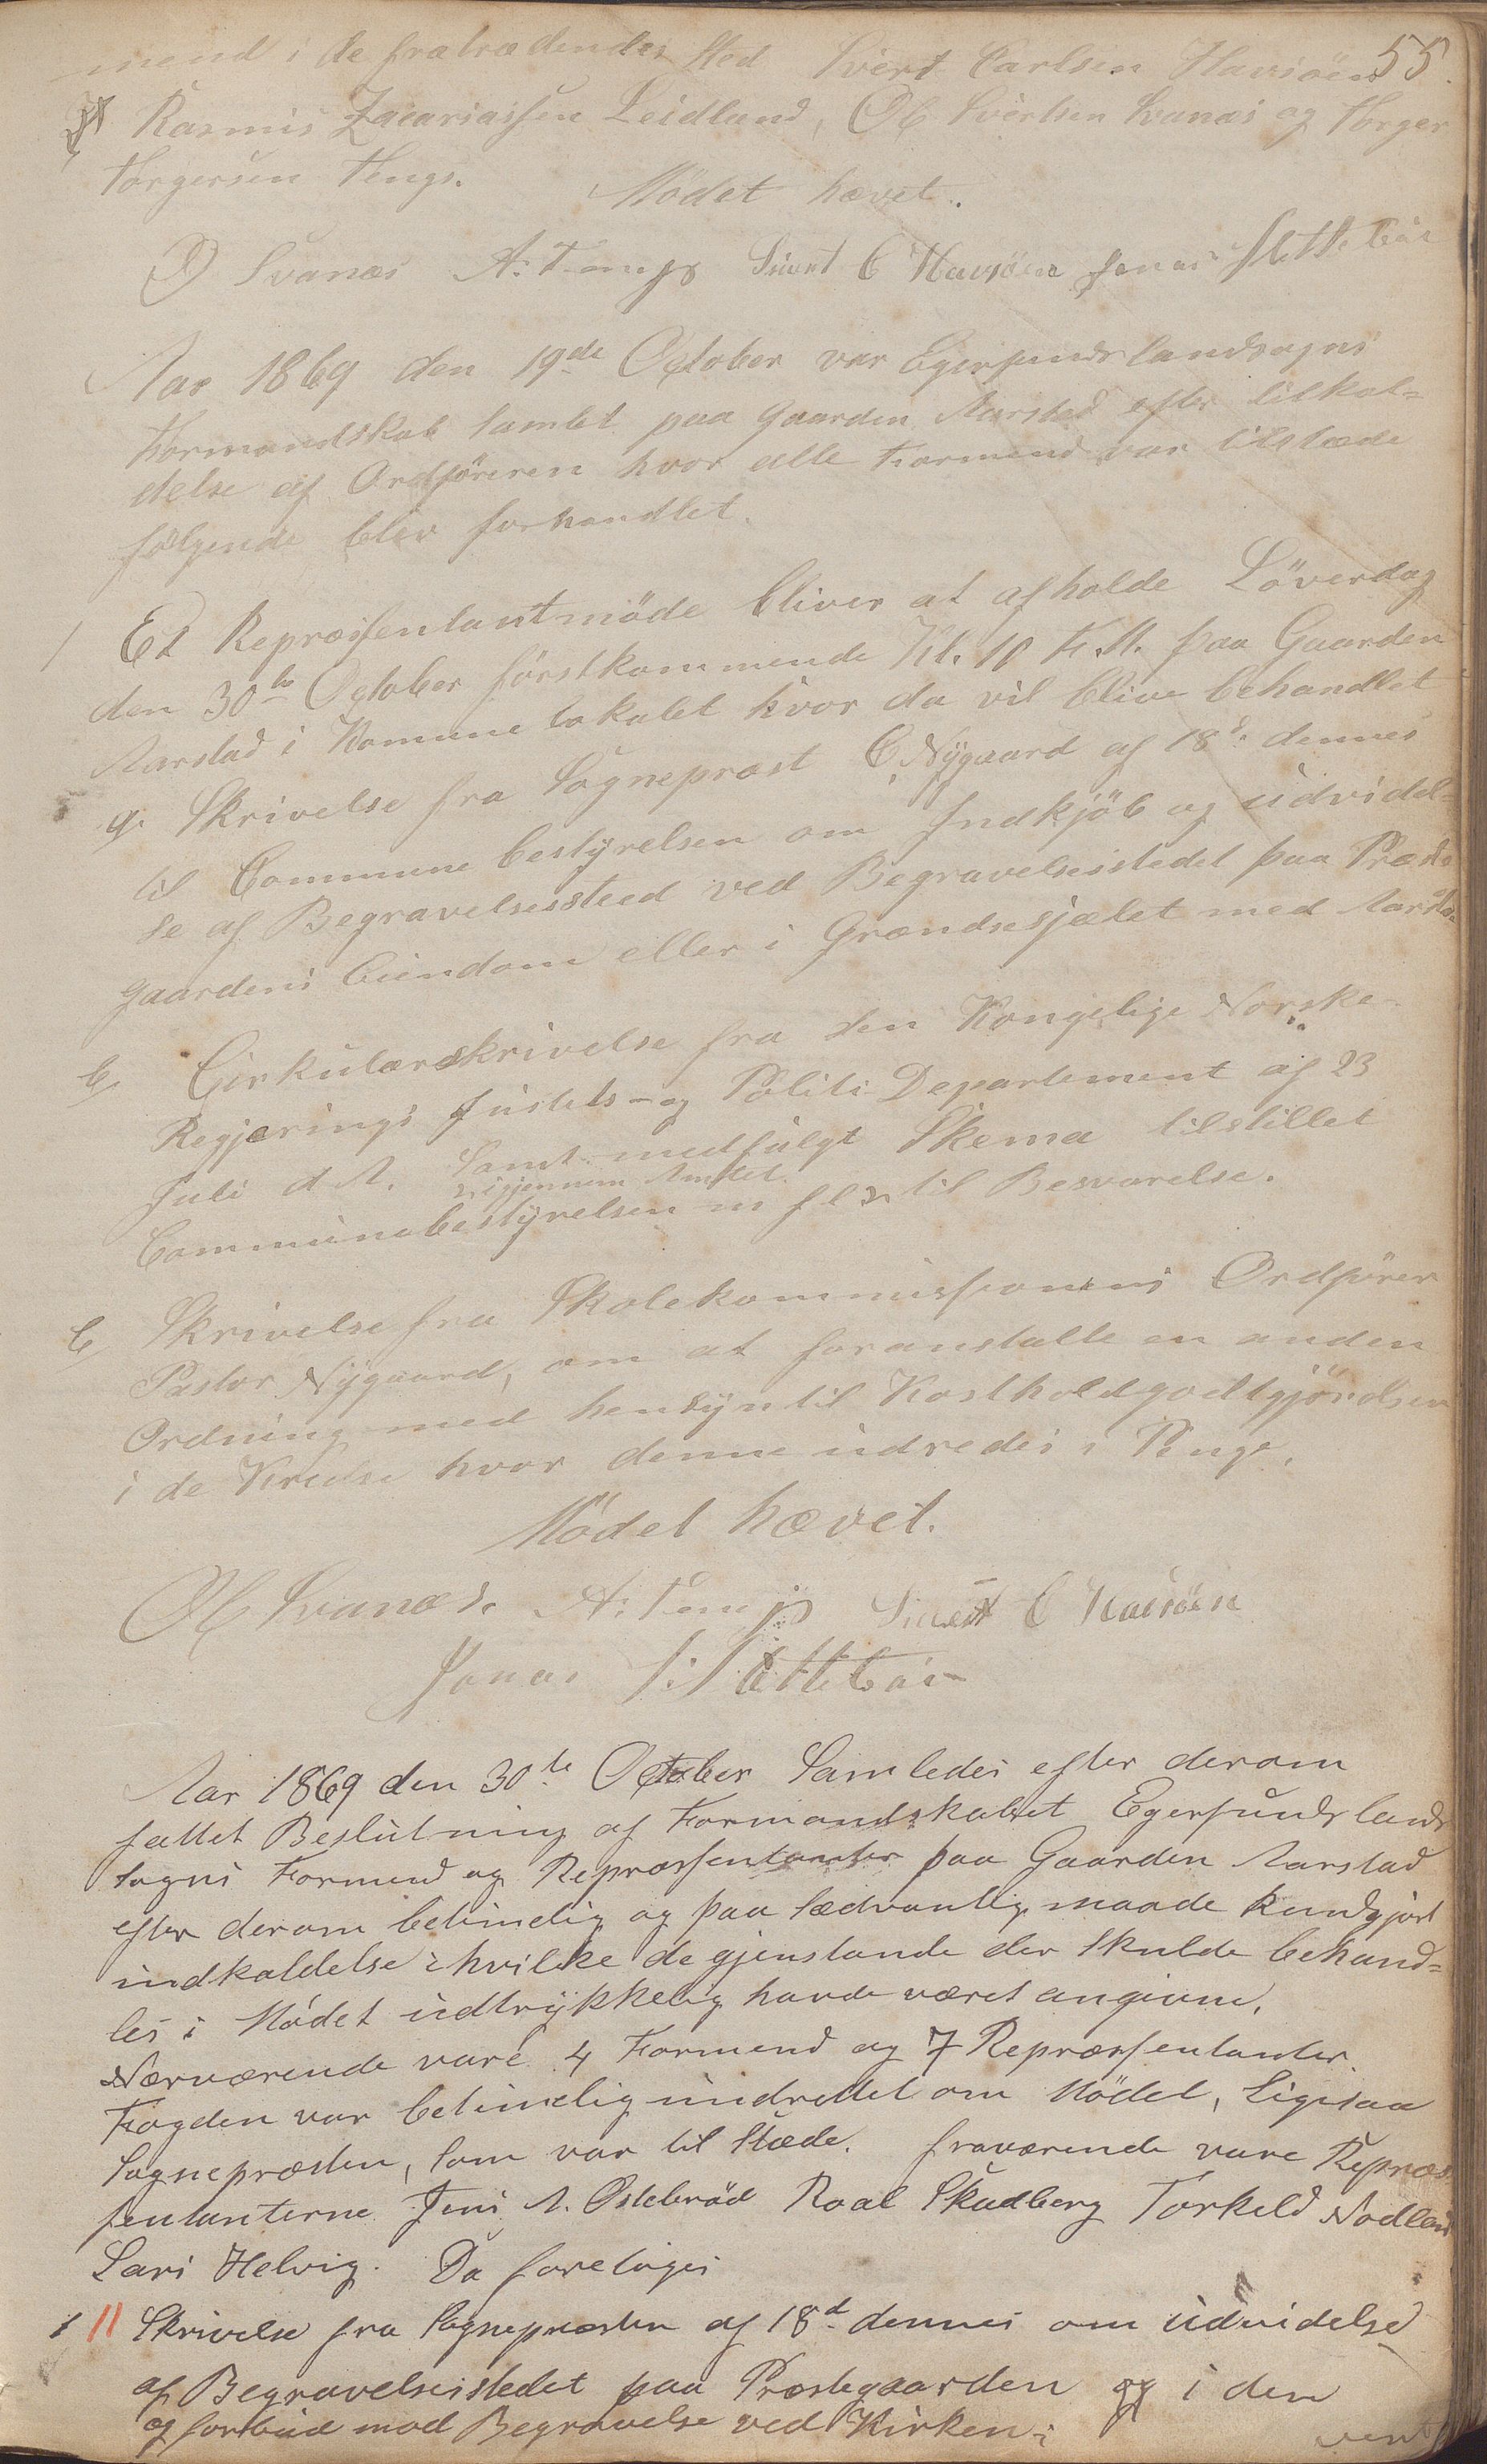 55.
mend i de fratrædendes Sted Sivert Carlsen Havsöen
Rasmus Zacariassen Leidland, Ole Sivertsen Svanæs og Torger
Torgersen Tengs.
Mödet hævet.
O Svanæs A. Tengs Sivert C Havsöen Jonas Sletteböe
Aar 1869 den 19de October var Egersunds landsogns
Formandskab samlet paa Gaarden Aarstad efter tilkal=
delse af Ordföreren hvor alle Formend var tilstæde
fölgende blev forhandlet.
1 Et Repræssentantmöde bliver at afholde Löverdag
den 30te October förstkommende Kl. 10 F.M. paa Gaarden
Aarstad i Komune lokalet hvor da vil blive behandlet
a. Skrivelse fra Sogneprest C. Nygaard af 18d. dennes
til Commune bestyrelsen om Indkjöb og udvidel=
se af Begravelsessteed ved Begravelsesstedet paa Præste
gaardens Eiendom eller i Grændsesjælet med Aarstad
b, Cirkulærskrivelse fra den Kongelige Norske
Regjerings Justits- og Politi Departement af 23
Juli d A. samt medfulgt Skema tilstillet
igjennem Amtet.
Communebestyrelsen m fl til Besvarelse.
c, Skrivelse fra Skolekommissionens Ordförer
Pastor Nygaard, om at foranstalte en anden
Ordning med hensyn til Kostholdgodtgjörelsen
i de Kredse hvor denne udredes i Penge.
Mödet hævet.
Ole Svanæs. A. Tengs Sivert C Havsöen
Jonas S. Sletteböe
Aar 1869 den 30te October Samledes efter derom
fattet Beslutning af Formandskabet Egersunds lands
sogns Formend og Repræssentanter paa Gaarden Aarstad
efter derom betimelig og paa sædvanlig maade kundgjort
indkaldelse i hvilke de gjenstande der skulde behand=
les i Mödet udtrykkelig havde været angivne.
Nærværende vare 4 Formend og 7 Repræssentanter.
Fogden var betimelig undrettet om Mödet, Ligesaa
Sognepræsten, som var til Stæde. fraværende vare Repræs
sentanterne Jens A. Ostebröd Roal Skadberg Torkeld Nodland
Lars Helvig. Da foretoges
1 11 Skrivelse fra Sognepræsten af 18d. dennes om udvidelse
af Begravelsesstedet paa Præstegaarden og i den
og forbud mod Begravelse ved Kirken;